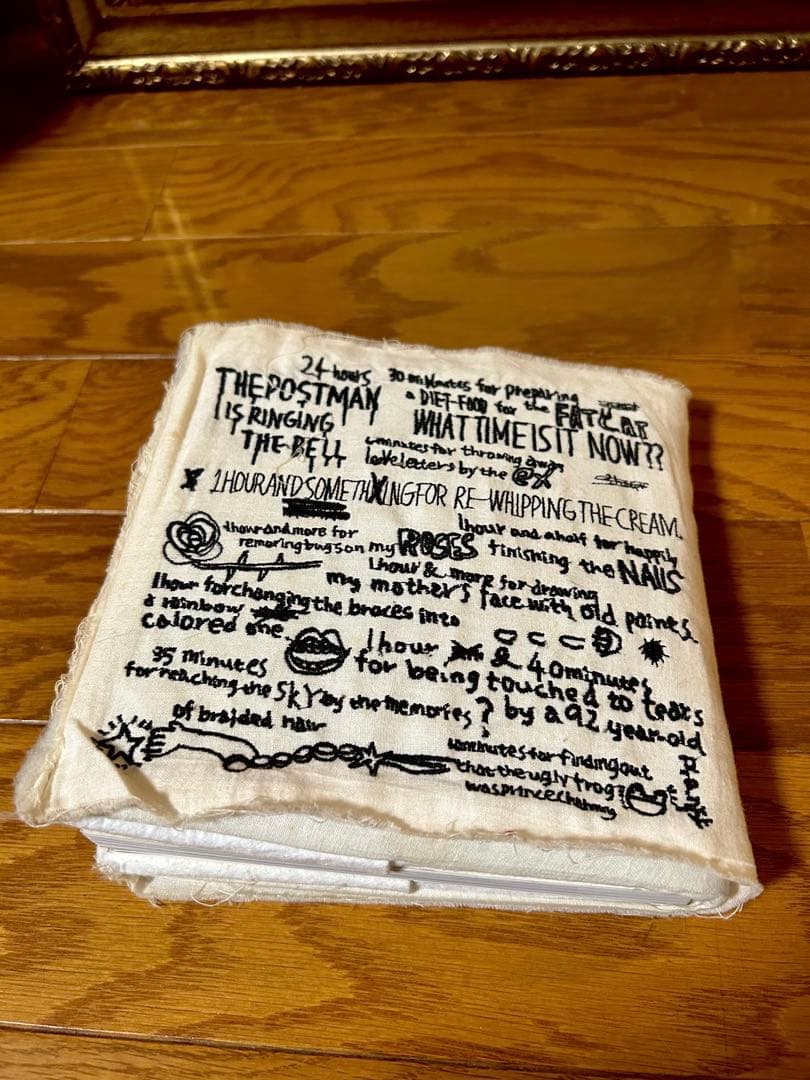 24 hours
THE POSTMAN
IS RINGING
THE BELL
30 minutes for preparing
a DIET-FOOD for the FAT CAT
WHAT TIME IS IT NOW??
minutes for throwing away
love letters by the ex
1HOUR AND SOMETHXING FOR RE-WHIPPING THE CREAM.
1hour and more for
removing bugs on my ROSES
1hour and a half for happily
finishing the NAILS
1hour & more for drawing
my mother's face with old paints.
1hour for changing the braces into
a rainbow
colored one.
1hour & 40minutes
for being touched to tears
by a 92 year-old
pianist
35 minutes
for reaching the SKY by the memories
of braided hair
minutes for finding out
that the ugly frog
was prince charming